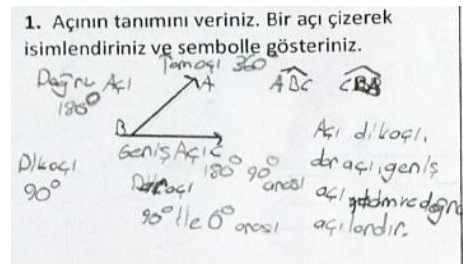 1. Açının tanımını veriniz. Bir açı çizerek
isimlendiriniz ve sembolle gösteriniz.
Tamaçı 360°
Doğru Açı
180°
A
ABC CBA
B
C
Geniş Açı
180° 90°
arası
Dikaçı
90°
Daraçı
90° ile 0° arası
Açı dikaçı,
dar açı, geniş
açı ve doğru
açılardır.